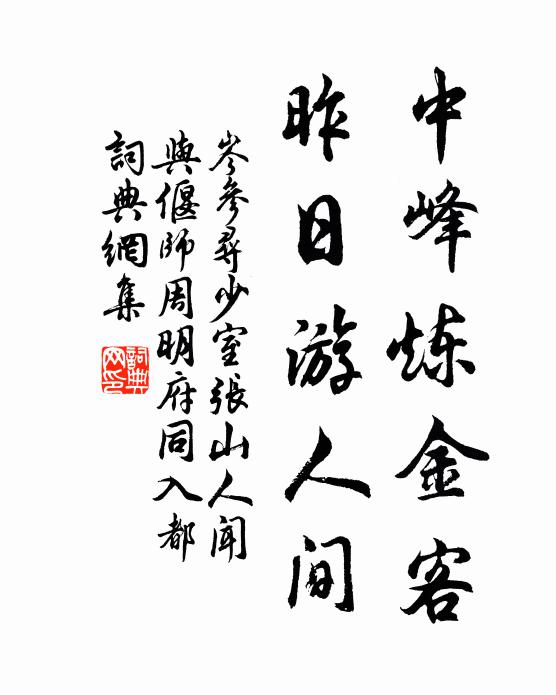 中峰炼金客
昨日游人间
岑参寻少室張山人聞
與偃師周明府同入都
詞典網集
詞典網印